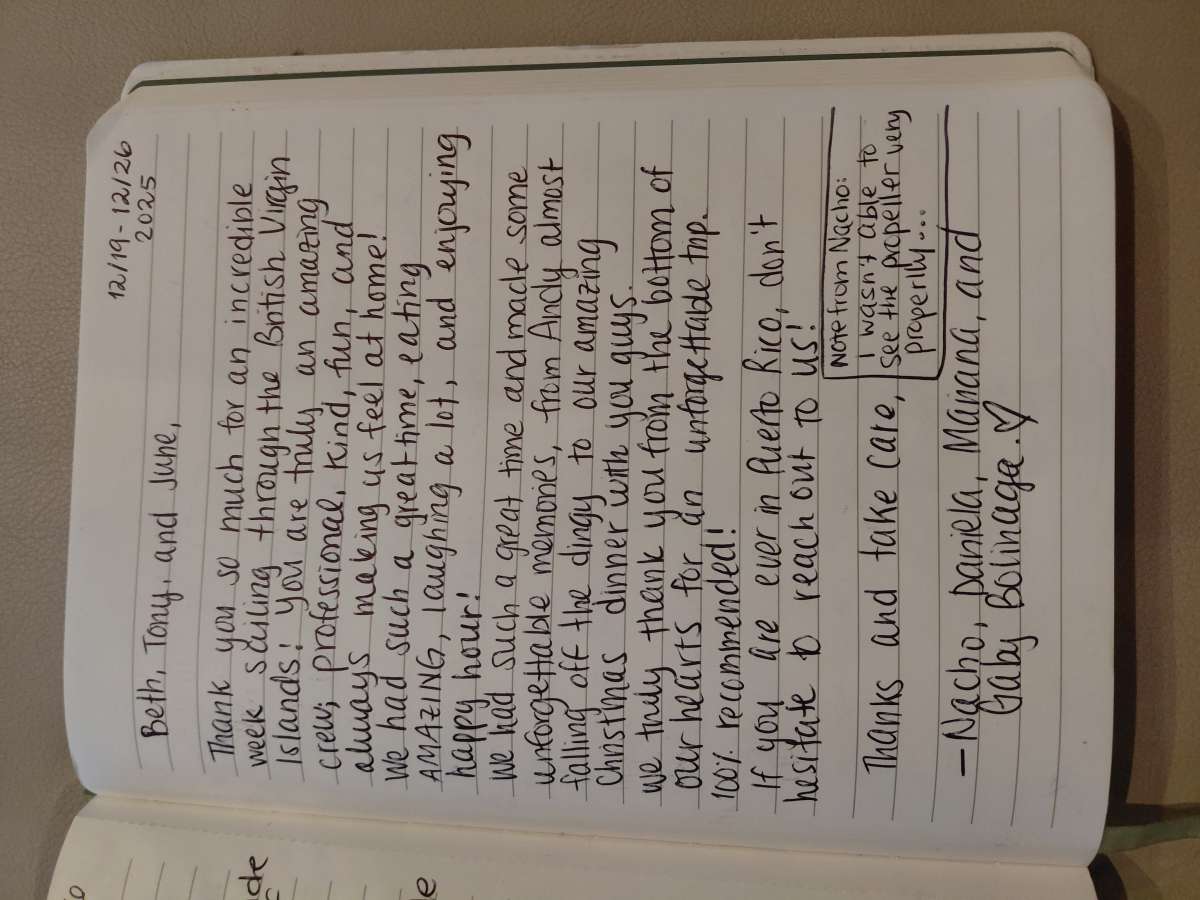 12/19 - 12/26
2025
Beth, Tony, and June,
Thank you so much for an incredible
week sailing through the British Virgin
Islands! You are truly an amazing
crew; professional, kind, fun, and
always making us feel at home!
We had such a great time, eating
AMAZING, laughing a lot, and enjoying
happy hour!
We had such a great time and made some
unforgettable memories, from Andy almost
falling off the dingy to our amazing
Christmas dinner with you guys.
We truly thank you from the bottom of
our hearts for an unforgettable trip.
100% recommended!
If you are ever in Puerto Rico, don't
hesitate to reach out to us!
Note from Nacho:
I wasn't able to
see the propeller very
properlly...
Thanks and take care,
- Nacho, Daniela, Mariana, and
Gaby Bolinaga. ♡